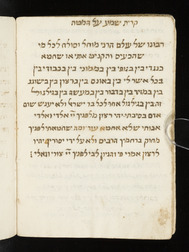 קרית שמע על המטה
רבונו של עולם הריני מוחל וסולח לכל מי
שהכעיס והקניט אותי או שחטא
כנגדי בין בגופי בין בממוני בין בכבודי בין
בכל אשר לי בין באונס בין ברצון בין בשוגג
בין במזיד בין בדבור בין במעשה בין בגלגול
זה בין בגלגול אחר לכל בר ישראל ולא יענש שום
אדם בסיבתי יהי רצון מלפניך יי אלהי ואלהי
אבותי שלא אחטא עוד ומה שחטאתי לפניך
מחוק ברחמיך הרבים ולא על ידי יסורין יהיו
לרצון אמרי פי והגיון לבי לפניך יי צורי וגואלי